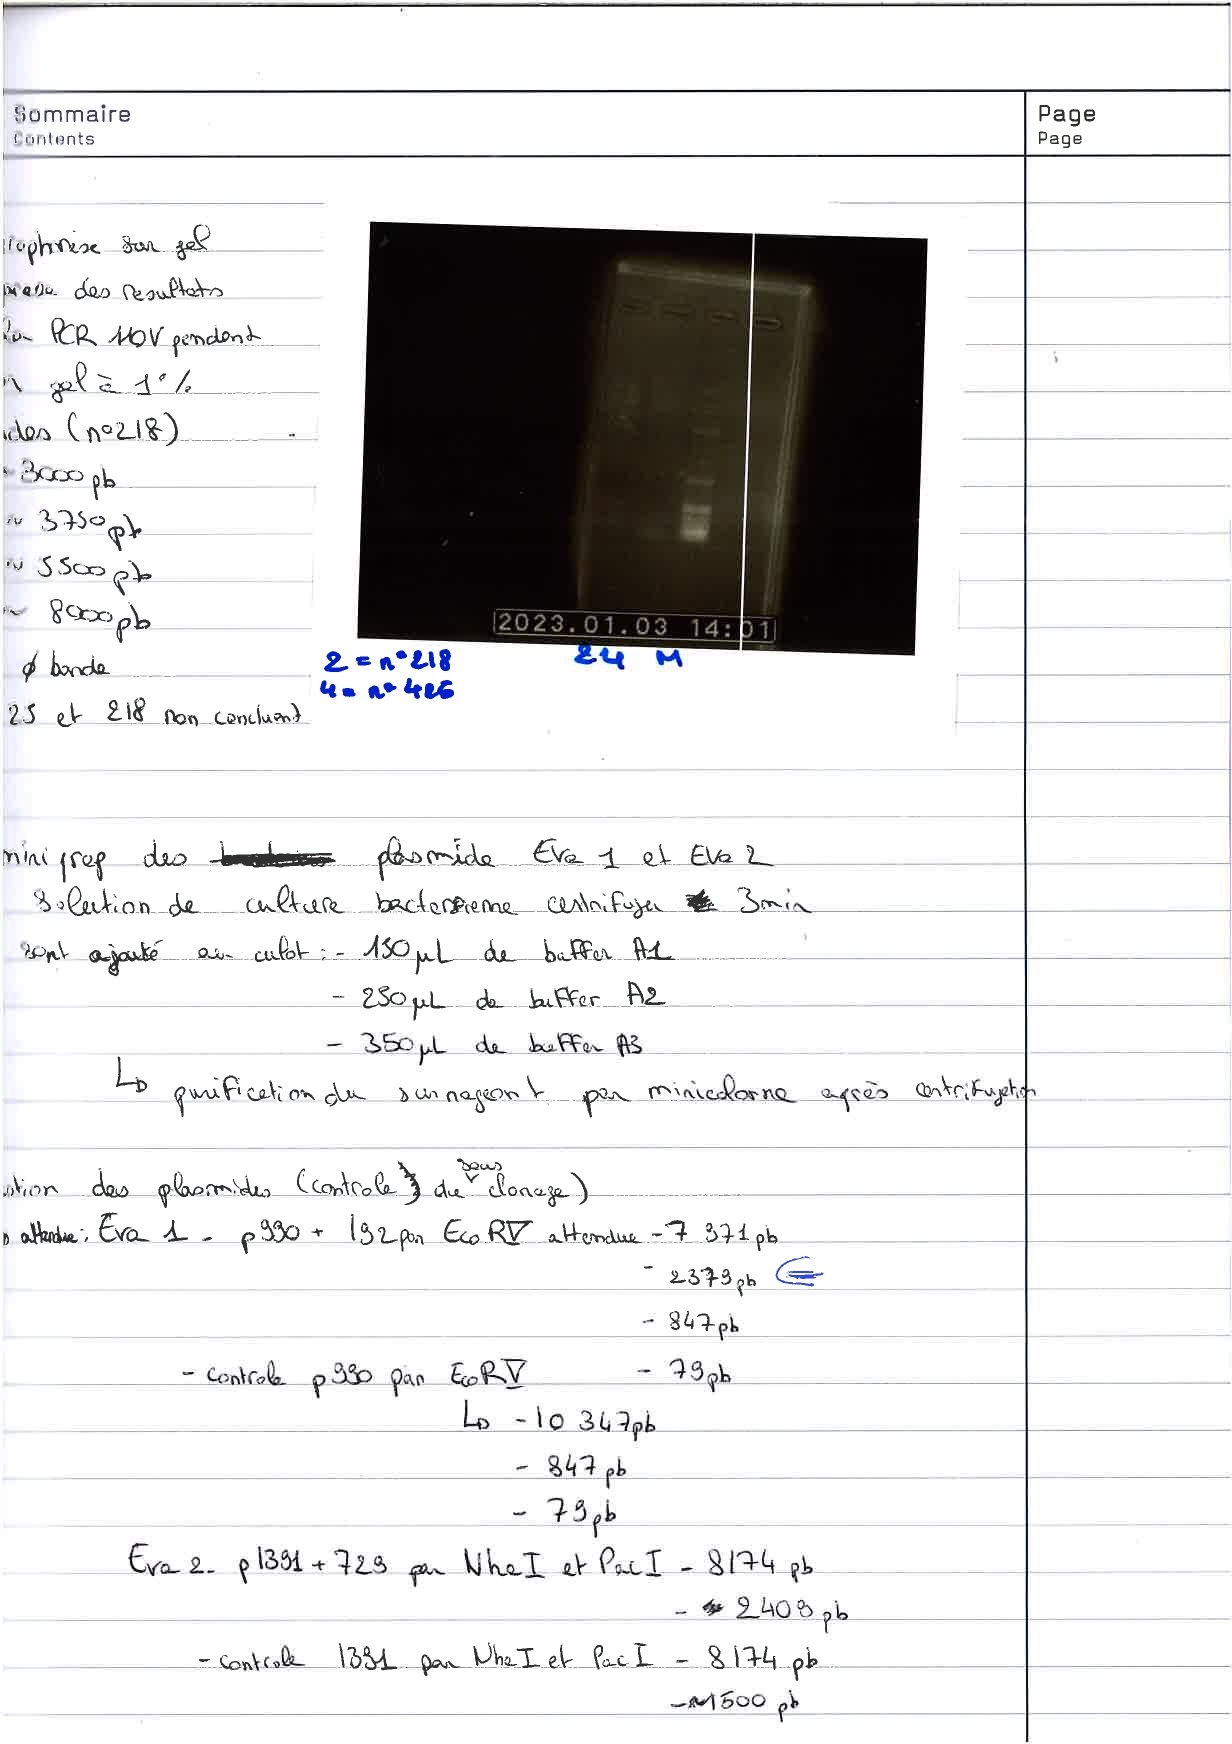 Sommaire
Contents
Page
Page
rophorèse sur gel
des resultats
PCR 110V pendant
gel à 1%
des (n°218)
~ 3000 pb
~ 3750 pb
~ 5500 pb
~ 8000 pb
ϕ bande
25 et 218 non concluant
2023.01.03 14:01
2 4 M
2 = n°218
4 = n° 426
mini prep des plasmide Eva 1 et Eva 2
de culture bacterienne centrifuger 3min
sont ajouté au culot : - 150 µL de buffer A1
- 250 µL de buffer A2
- 350 µL de buffer A3
↳ purification du surnageant par minicolonne après centrifugation
stion des plasmides (controle du sous clonage)
attendue : Eva 1 - p990 + 192 par EcoRV attendue - 7 371 pb
- 2379 pb
- 847 pb
- controle p990 par EcoRV - 79 pb
↳ - 10 347 pb
- 847 pb
- 79 pb
Eva 2 - p1391 + 729 par NheI et PacI - 8174 pb
- 2409 pb
- controle 1391 par NheI et PacI - 8174 pb
- ~1500 pb